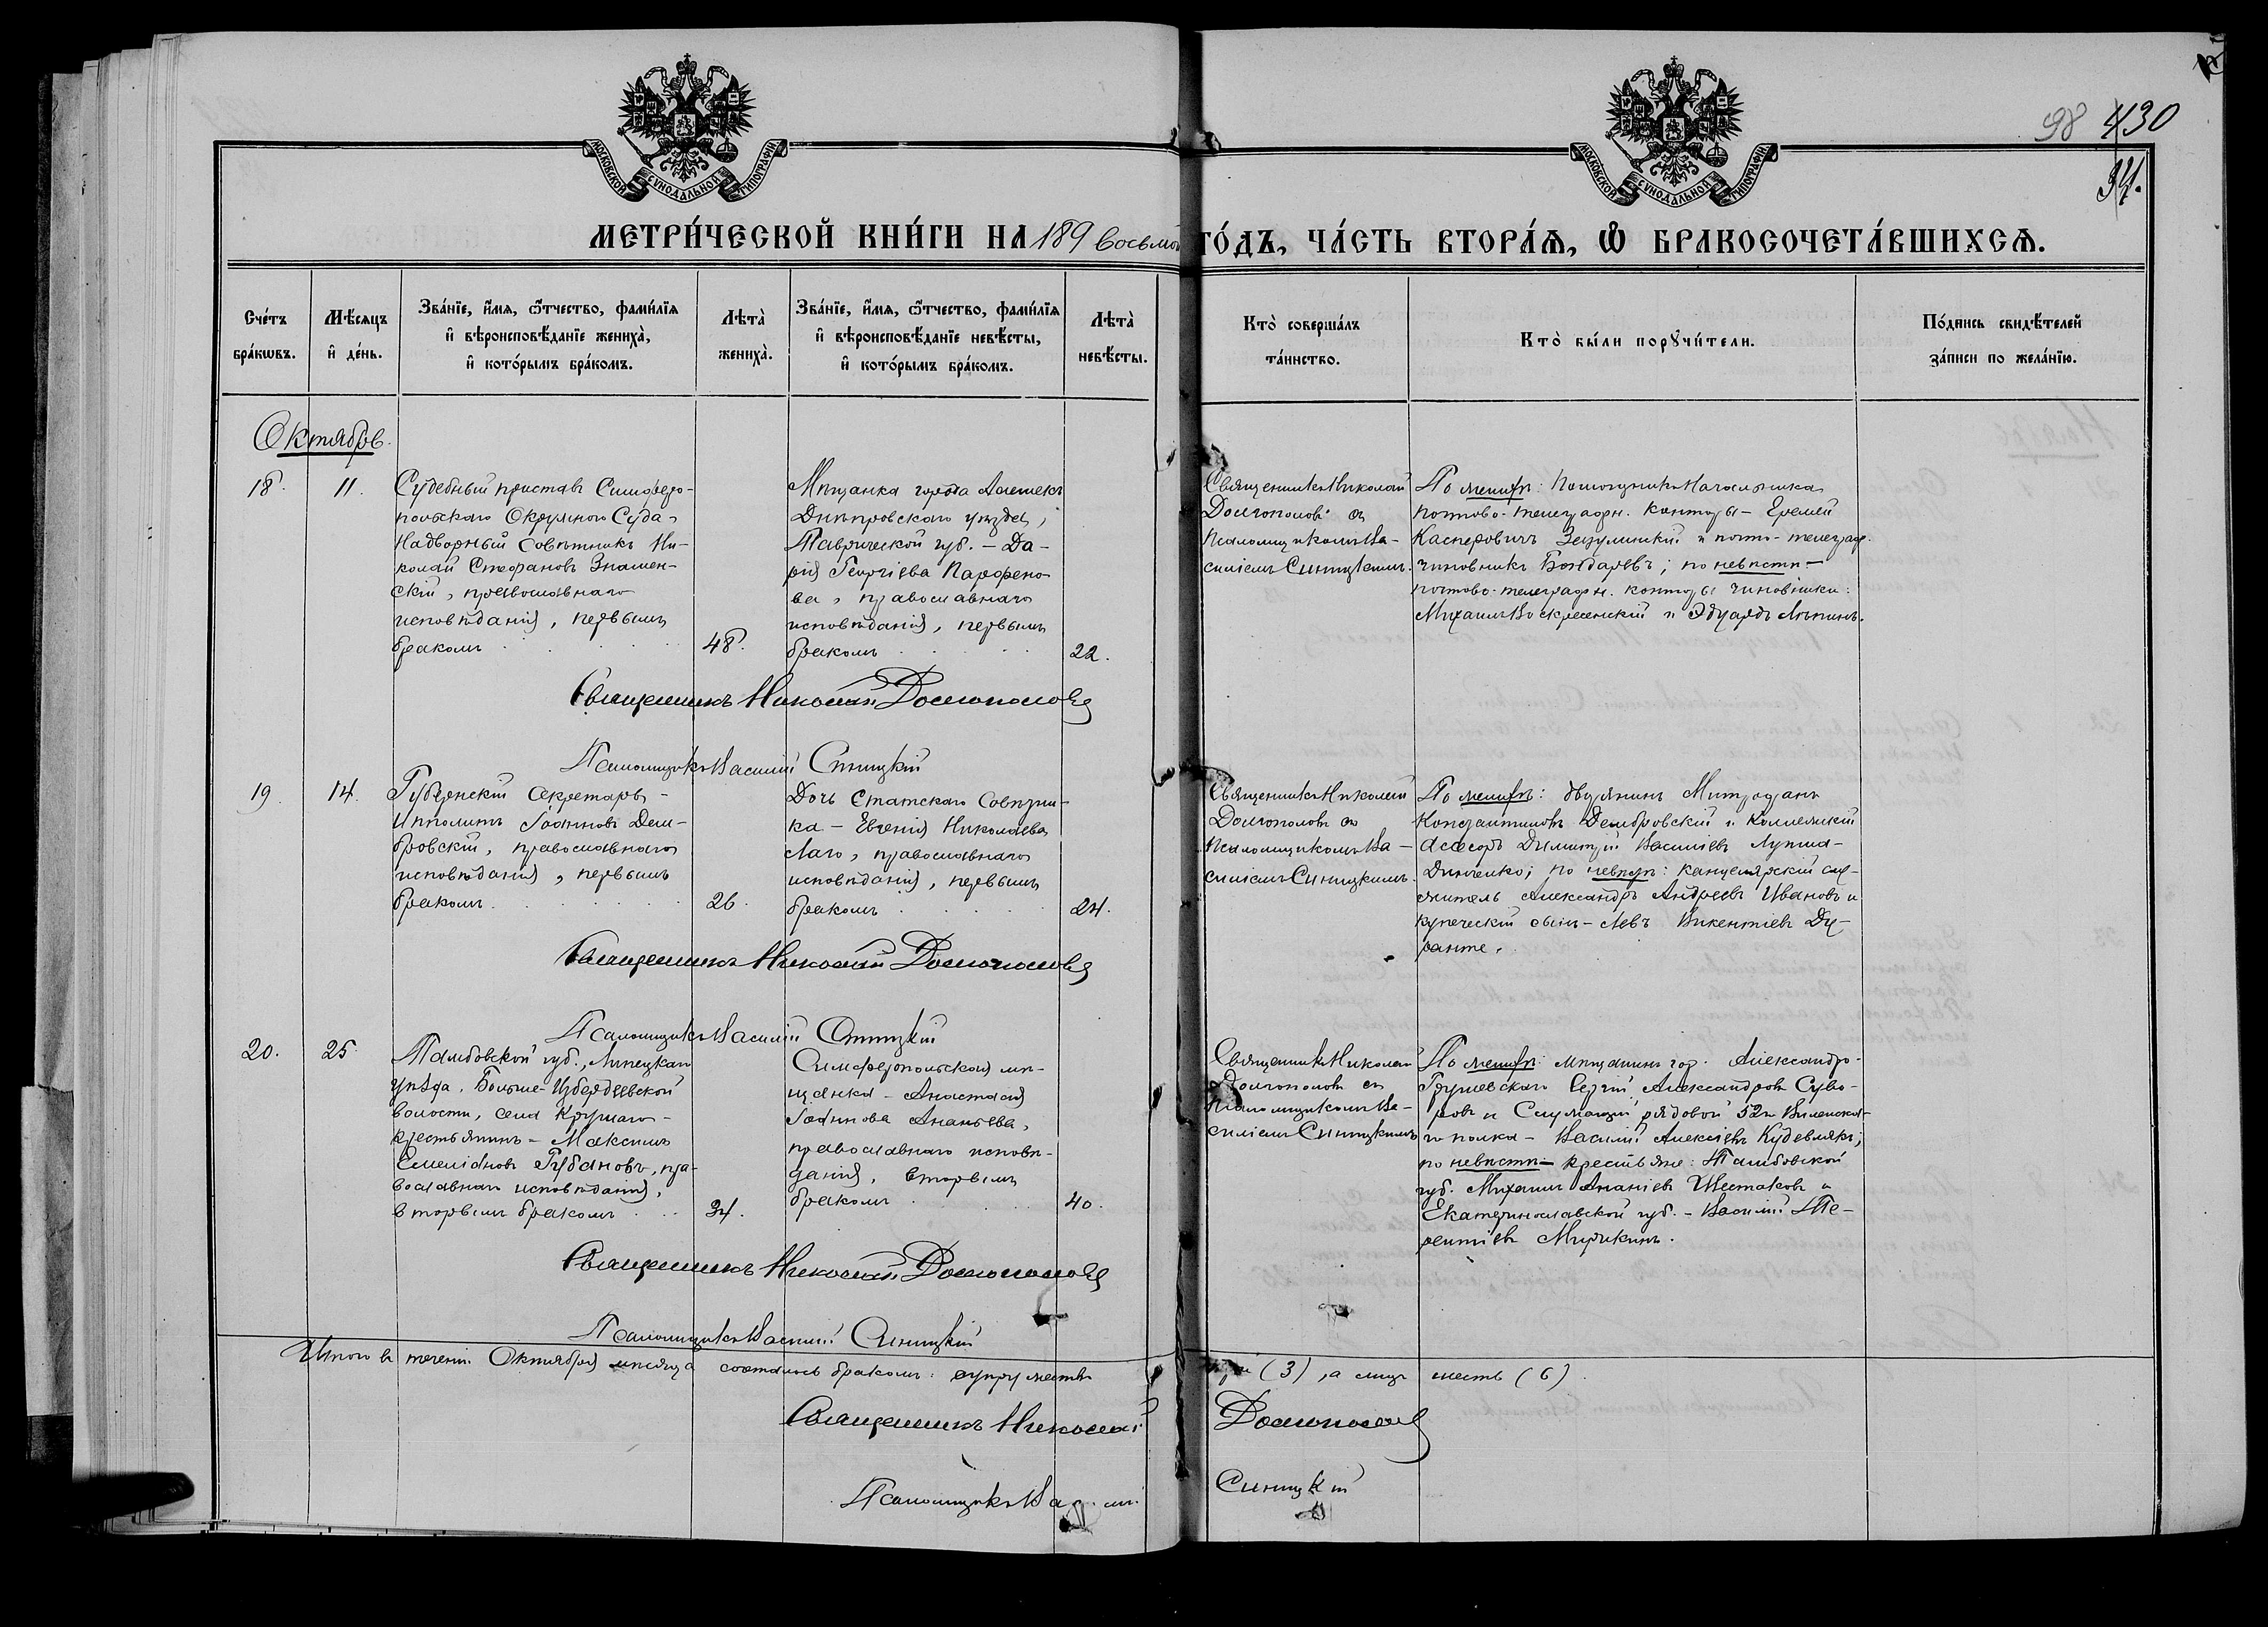 МОСКОВСКОЙ СѴНОДАЛЬНОЙ ТИПОГРАФІИ
МОСКОВСКОЙ СѴНОДАЛЬНОЙ ТИПОГРАФІИ
98 430
34.
МЕТРИ́ЧЕСКОЙ КНИ́ГИ НА 189 восьмой ГО́ДЪ, ЧА́СТЬ ВТОРА́Ѧ, Ѡ҆ БРАКОСОЧЕТА́ВШИХСѦ.
Сче́тъ
бра́кѡвъ.
Мѣ́сяцъ
и҆ де́нь.
Зва́нїе, и҆́мѧ, ѻ҆́тчество, фами́лїѧ
и҆ вѣроисповѣ́данїе жениха̀,
и҆ кото́рымъ бра́комъ.
Лѣта̀
жениха̀.
Зва́нїе, и҆́мѧ, ѻ҆́тчество, фами́лїѧ
и҆ вѣроисповѣ́данїе невѣ́сты,
и҆ кото́рымъ бра́комъ.
Лѣта̀
невѣ́сты.
Кто̀ соверша́лъ
та́инство.
Кто̀ бы́ли порꙋчи́тели.
По́дпись свидѣ́телей
за́писи по жела́нїю.
Октябрь.
18.
11.
Судебный приставъ Симферо-
польскаго Окружнаго Суда -
Надворный Совѣтникъ Ни-
колай Стефановъ Знамен-
скій, православнаго
исповѣданія, первымъ
бракомъ
48.
Мѣщанка города Алешекъ
Днѣпровскаго уѣзда,
Таврической губ. - Да-
рія Георгіева Парфено-
ва, православнаго
исповѣданія, первымъ
бракомъ
22.
Священникъ Николай
Долгополовъ съ
псаломщикомъ Ва-
силіемъ Синицкимъ.
По женихѣ: Помощникъ Начальника
почтово-телеграфн. конторы - Еремей
Касперовичъ и почт-телеграф.
чиновникъ Бондаревъ; по невѣстѣ -
почтово-телеграфн. конторы чиновники:
Михаилъ Воскресенскій и Эдуардъ
Священникъ Николай Долгополовъ
Псаломщикъ Василій Синицкій
19.
14.
Губернскій Секретарь -
Ипполитъ Іоанновъ Дем-
бровскій, православнаго
исповѣданія, первымъ
бракомъ
26.
Дочь Статскаго Совѣтни-
ка - Евгенія Николаева
православнаго
исповѣданія, первымъ
бракомъ
24.
Священникъ Николай
Долгополовъ съ
псаломщикомъ Ва-
силіемъ Синицкимъ.
По женихѣ: дворянинъ Митрофанъ
Константиновъ Дембровскій и Коллежскій
Асесоръ Димитрій Васильевъ
по невѣстѣ: канцелярскій слу-
житель Александръ Андреевъ Ивановъ и
купеческій сынъ - Левъ Викентіевъ Ду-
ранте.
Священникъ Николай Долгополовъ
Псаломщикъ Василій Синицкій
20.
25.
Тамбовской губ., Липецкаго
уѣзда, Больше-Избердеевской
волости, села Круглаго -
крестьянинъ - Максимъ
Емеліановъ Губановъ, пра-
вославнаго исповѣданія,
вторымъ бракомъ
34.
Симферопольская мѣ-
щанка - Анастасія
Іоаннова Ананьева,
православнаго исповѣ-
данія, вторымъ
бракомъ
40.
Священникъ Николай
Долгополовъ съ
псаломщикомъ Ва-
силіемъ Синицкимъ
По женихѣ: мѣщанинъ гор. Александро-
Грушевскаго Сергій Александровъ Суво-
ровъ и Служащій рядовой 52го Виленска-
го полка - Василій Алексіевъ
по невѣстѣ - крестьяне: Тамбовской
губ. Михаилъ Ананіевъ Шестаковъ и
Екатеринославской губ. - Василій Те-
рентіевъ
Священникъ Николай Долгополовъ
Псаломщикъ Василій Синицкій
Итого въ теченіи Октября мѣсяца состоялось бракомъ: супружествъ три (3), а лицъ шесть (6).
Священникъ Николай Долгополовъ
Псаломщикъ Василій Синицкій